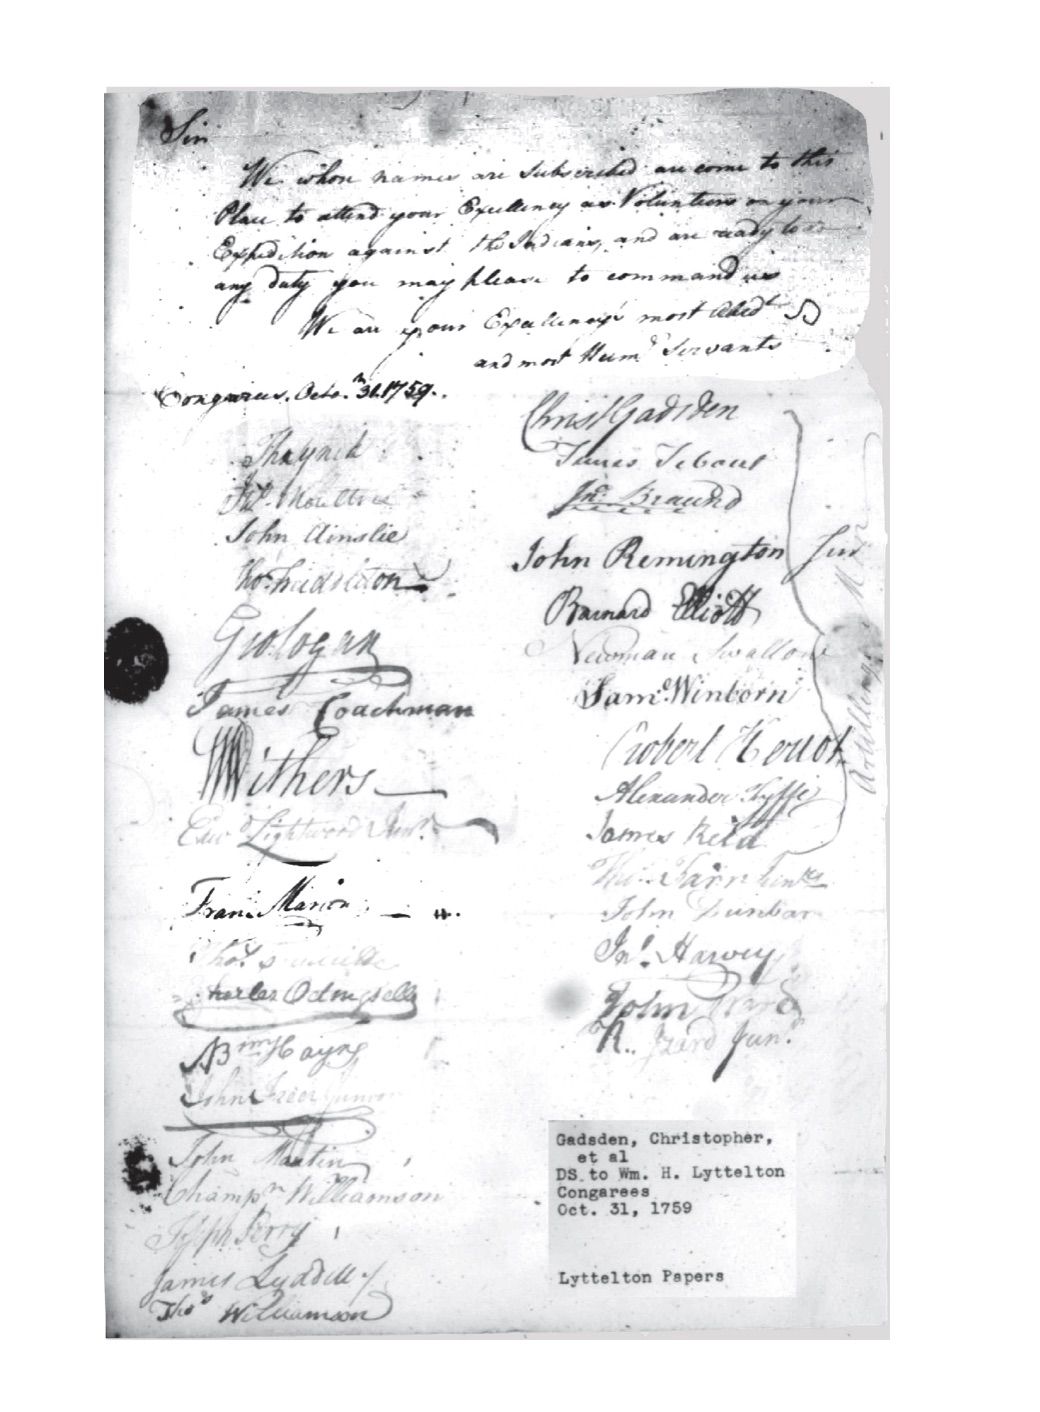 Sir
We whose names are Subscribed are come to this
Place to attend your Excellency as Volunteers on your
Expedition against the Indians, and are ready to do
any duty you may please to command us
We are your Excellency's most Obedt
and most Humb Servants
Congarees. Octo. 31. 1759.
Moultrie
John Ainslie
Thos. Middleton
Geo. Logan
James Coachman
Withers
Edwd Lightwood Junr.
Fran: Marion
Thos.
Charles Odingsells
Abm. Hayne
John Freer Junior
John Martin
Champn Williamson
Joseph Perry
James Lyddell
Thos Williamson
Christ Gadsden
James Tebout
Jno. Braund
John Remington Junr
Barnard Elliott
Newman Swallow
Saml. Winborn
Robert Heriot
Alexander
James Reid
Thos. Farr Junr
John Dunbar
Jno. Harvey
John Ward
R. Izard Junr.
Artillery
Gadsden, Christopher,
et al
DS to Wm. H. Lyttelton
Congarees
Oct. 31, 1759
Lyttelton Papers